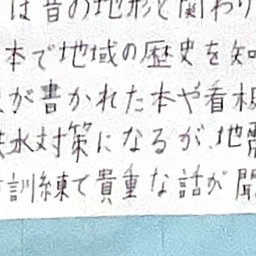 は昔の地形と関わり
本で地域の歴史を知
が書かれた本や看板
水対策になるが、地震
訓練で貴重な話が聞